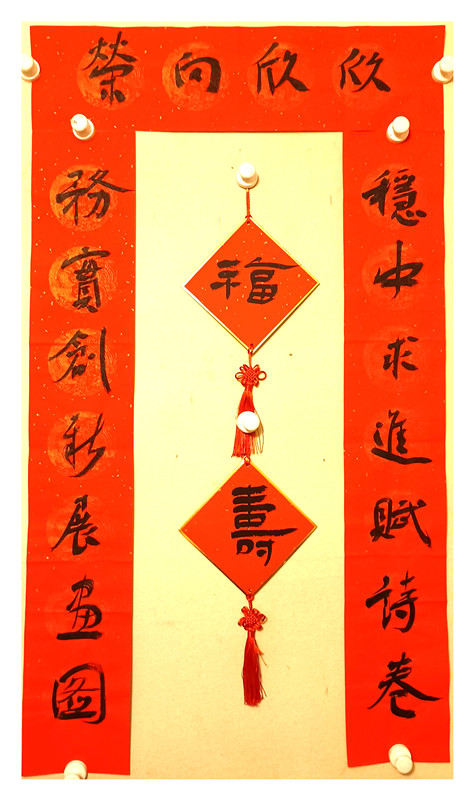 欣欣向榮
穩中求進賦詩卷
務實創新展画圖
福
壽